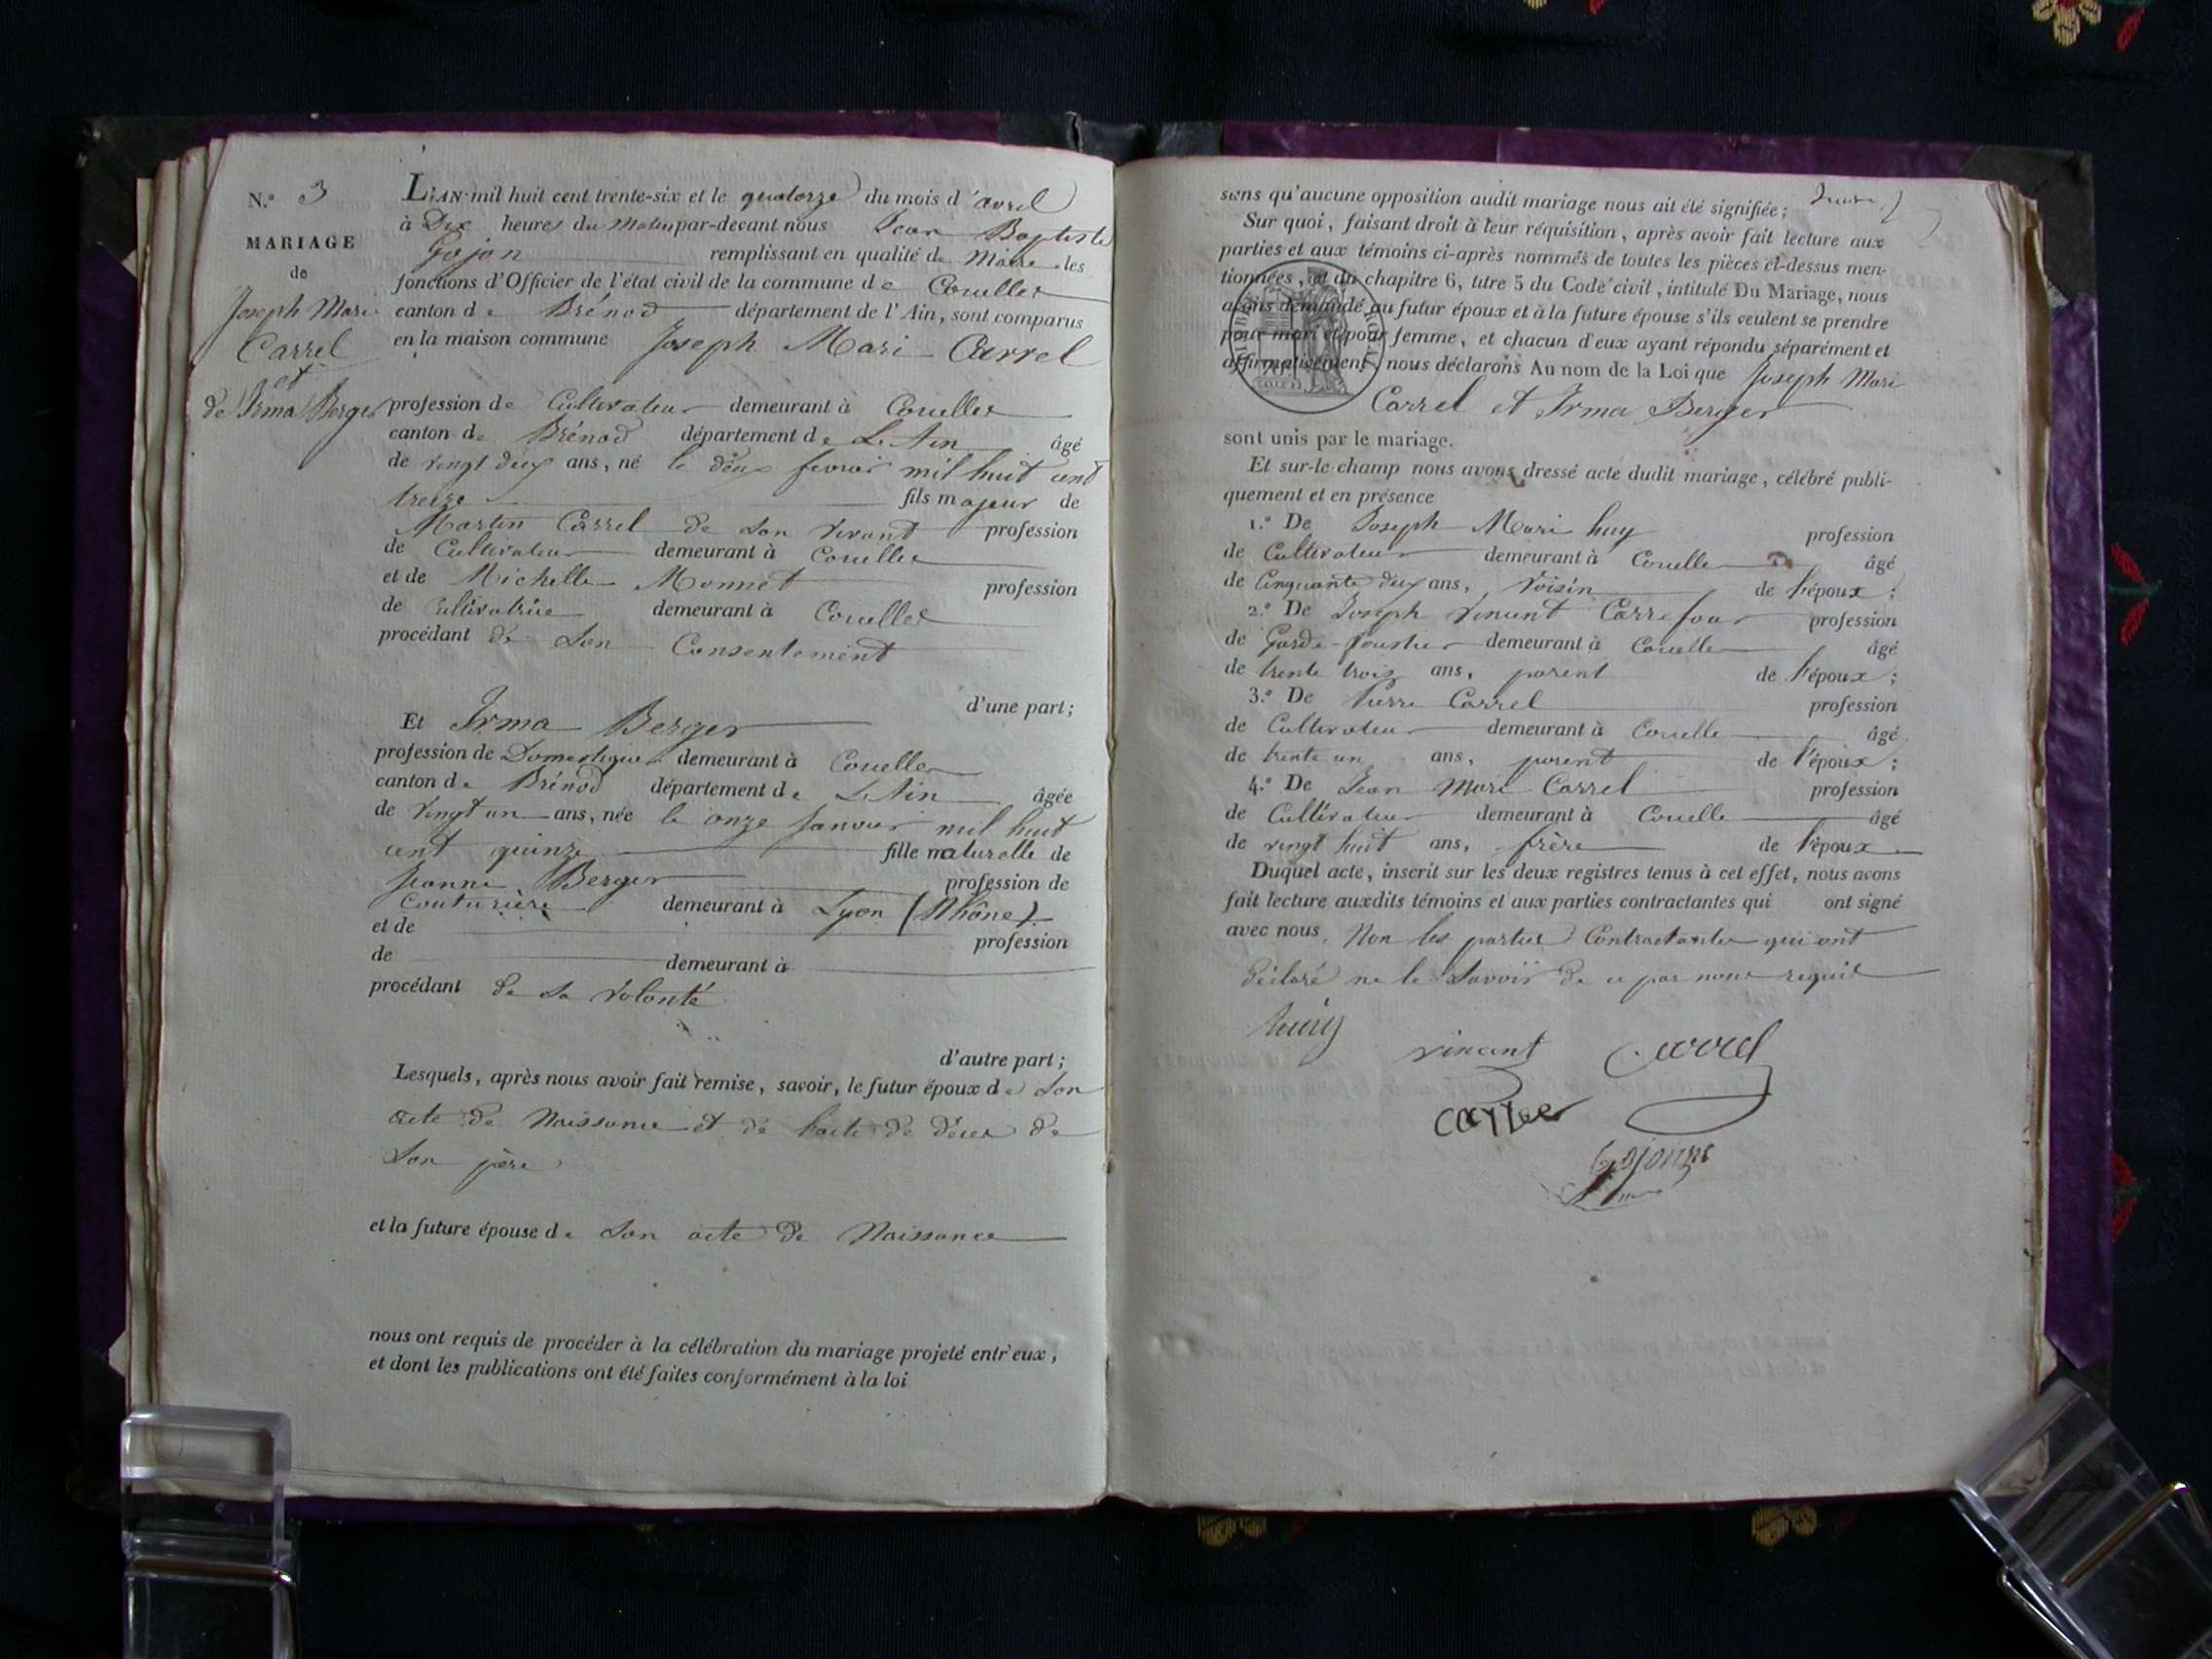 N.º 3
MARIAGE
de
Joseph Mari
Carrel
et
de Irma Berger
L'AN mil huit cent trente-six et le quatorze du mois d'avril
à Dix heures du Matin par-devant nous Jean Baptiste
Gojon remplissant en qualité de Maire les
fonctions d'Officier de l'état civil de la commune de Corcelles
canton de Brénod département de l'Ain, sont comparus
en la maison commune Joseph Mari Carrel
profession de Cultivateur demeurant à Corcelles
canton de Brénod département de L'Ain âgé
de vingt deux ans, né le deux fevrier mil huit cent
treize fils majeur de
Martin Carrel de son vivant profession
de Cultivateur demeurant à Corcelles
et de Michelle Monnet profession
de Cultivatrice demeurant à Corcelles
procédant de son Consentement
d'une part;
Et Irma Berger
profession de Domestique demeurant à Corcelles
canton de Brénod département de L'Ain âgée
de vingt un ans, née le onze Janvier mil huit
cent quinze fille naturelle de
Jeanne Berger profession de
Couturière demeurant à Lyon (Rhône)
et de
profession
de demeurant à
procédant de sa volonté
d'autre part;
Lesquels, après nous avoir fait remise, savoir, le futur époux de son
acte de Naissance et de l'acte de décès de
son père
et la future épouse de son acte de Naissance
nous ont requis de procéder à la célébration du mariage projeté entr'eux,
et dont les publications ont été faites conformément à la loi
sans qu'aucune opposition audit mariage nous ait été signifiée;
Sur quoi, faisant droit à leur réquisition, après avoir fait lecture aux
parties et aux témoins ci-après nommés de toutes les pièces ci-dessus men-
tionnées, et du chapitre 6, titre 5 du Code civil, intitulé Du Mariage, nous
avons demandé au futur époux et à la future épouse s'ils veulent se prendre
pour mari et pour femme, et chacun d'eux ayant répondu séparément et
affirmativement, nous déclarons Au nom de la Loi que Joseph Mari
Carrel et Irma Berger
sont unis par le mariage.
Et sur-le-champ nous avons dressé acte dudit mariage, célébré publi-
quement et en présence
1.º De Joseph Mari huy profession
de Cultivateur demeurant à Corcelle âgé
de Cinquante deux ans, voisin de l'époux;
2.º De Joseph vincent Carrefour profession
de Garde-forestier demeurant à Corcelle âgé
de trente trois ans, parent de l'époux;
3.º De Pierre Carrel profession
de Cultivateur demeurant à Corcelle âgé
de trente un ans, parent de l'époux;
4.º De Jean Mari Carrel profession
de Cultivateur demeurant à Corcelle âgé
de vingt huit ans, frère de l'époux
Duquel acte, inscrit sur les deux registres tenus à cet effet, nous avons
fait lecture auxdits témoins et aux parties contractantes qui ont signé
avec nous Non les parties Contractantes qui ont
déclaré ne le savoir de ce par nous requis
huy
vincent
Carrel